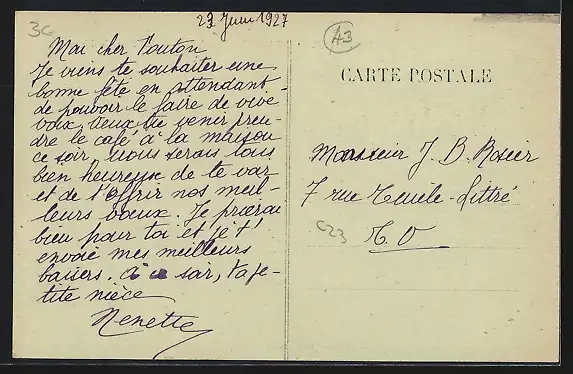 23 Juin 1927
3c
A3
Mon cher Tonton
Je viens te souhaiter une
bonne fête en attendant
de pouvoir le faire de vive
voix. Veux tu venir pren-
dre le café à la maison
ce soir, nous serons tous
bien heureuse de te voir
et de t'offrir nos meil-
leurs vœux. Je prierai
bien pour toi et je t'
envoie mes meilleurs
baisers. à ce soir, ta pe-
tite nièce
Nenette
CARTE POSTALE
Monsieur J. B. Rosier
7 rue Emile-Littré
C23
E. V